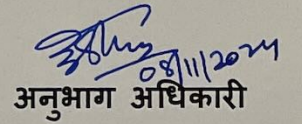 08/11/2024
अनुभाग अधिकारी